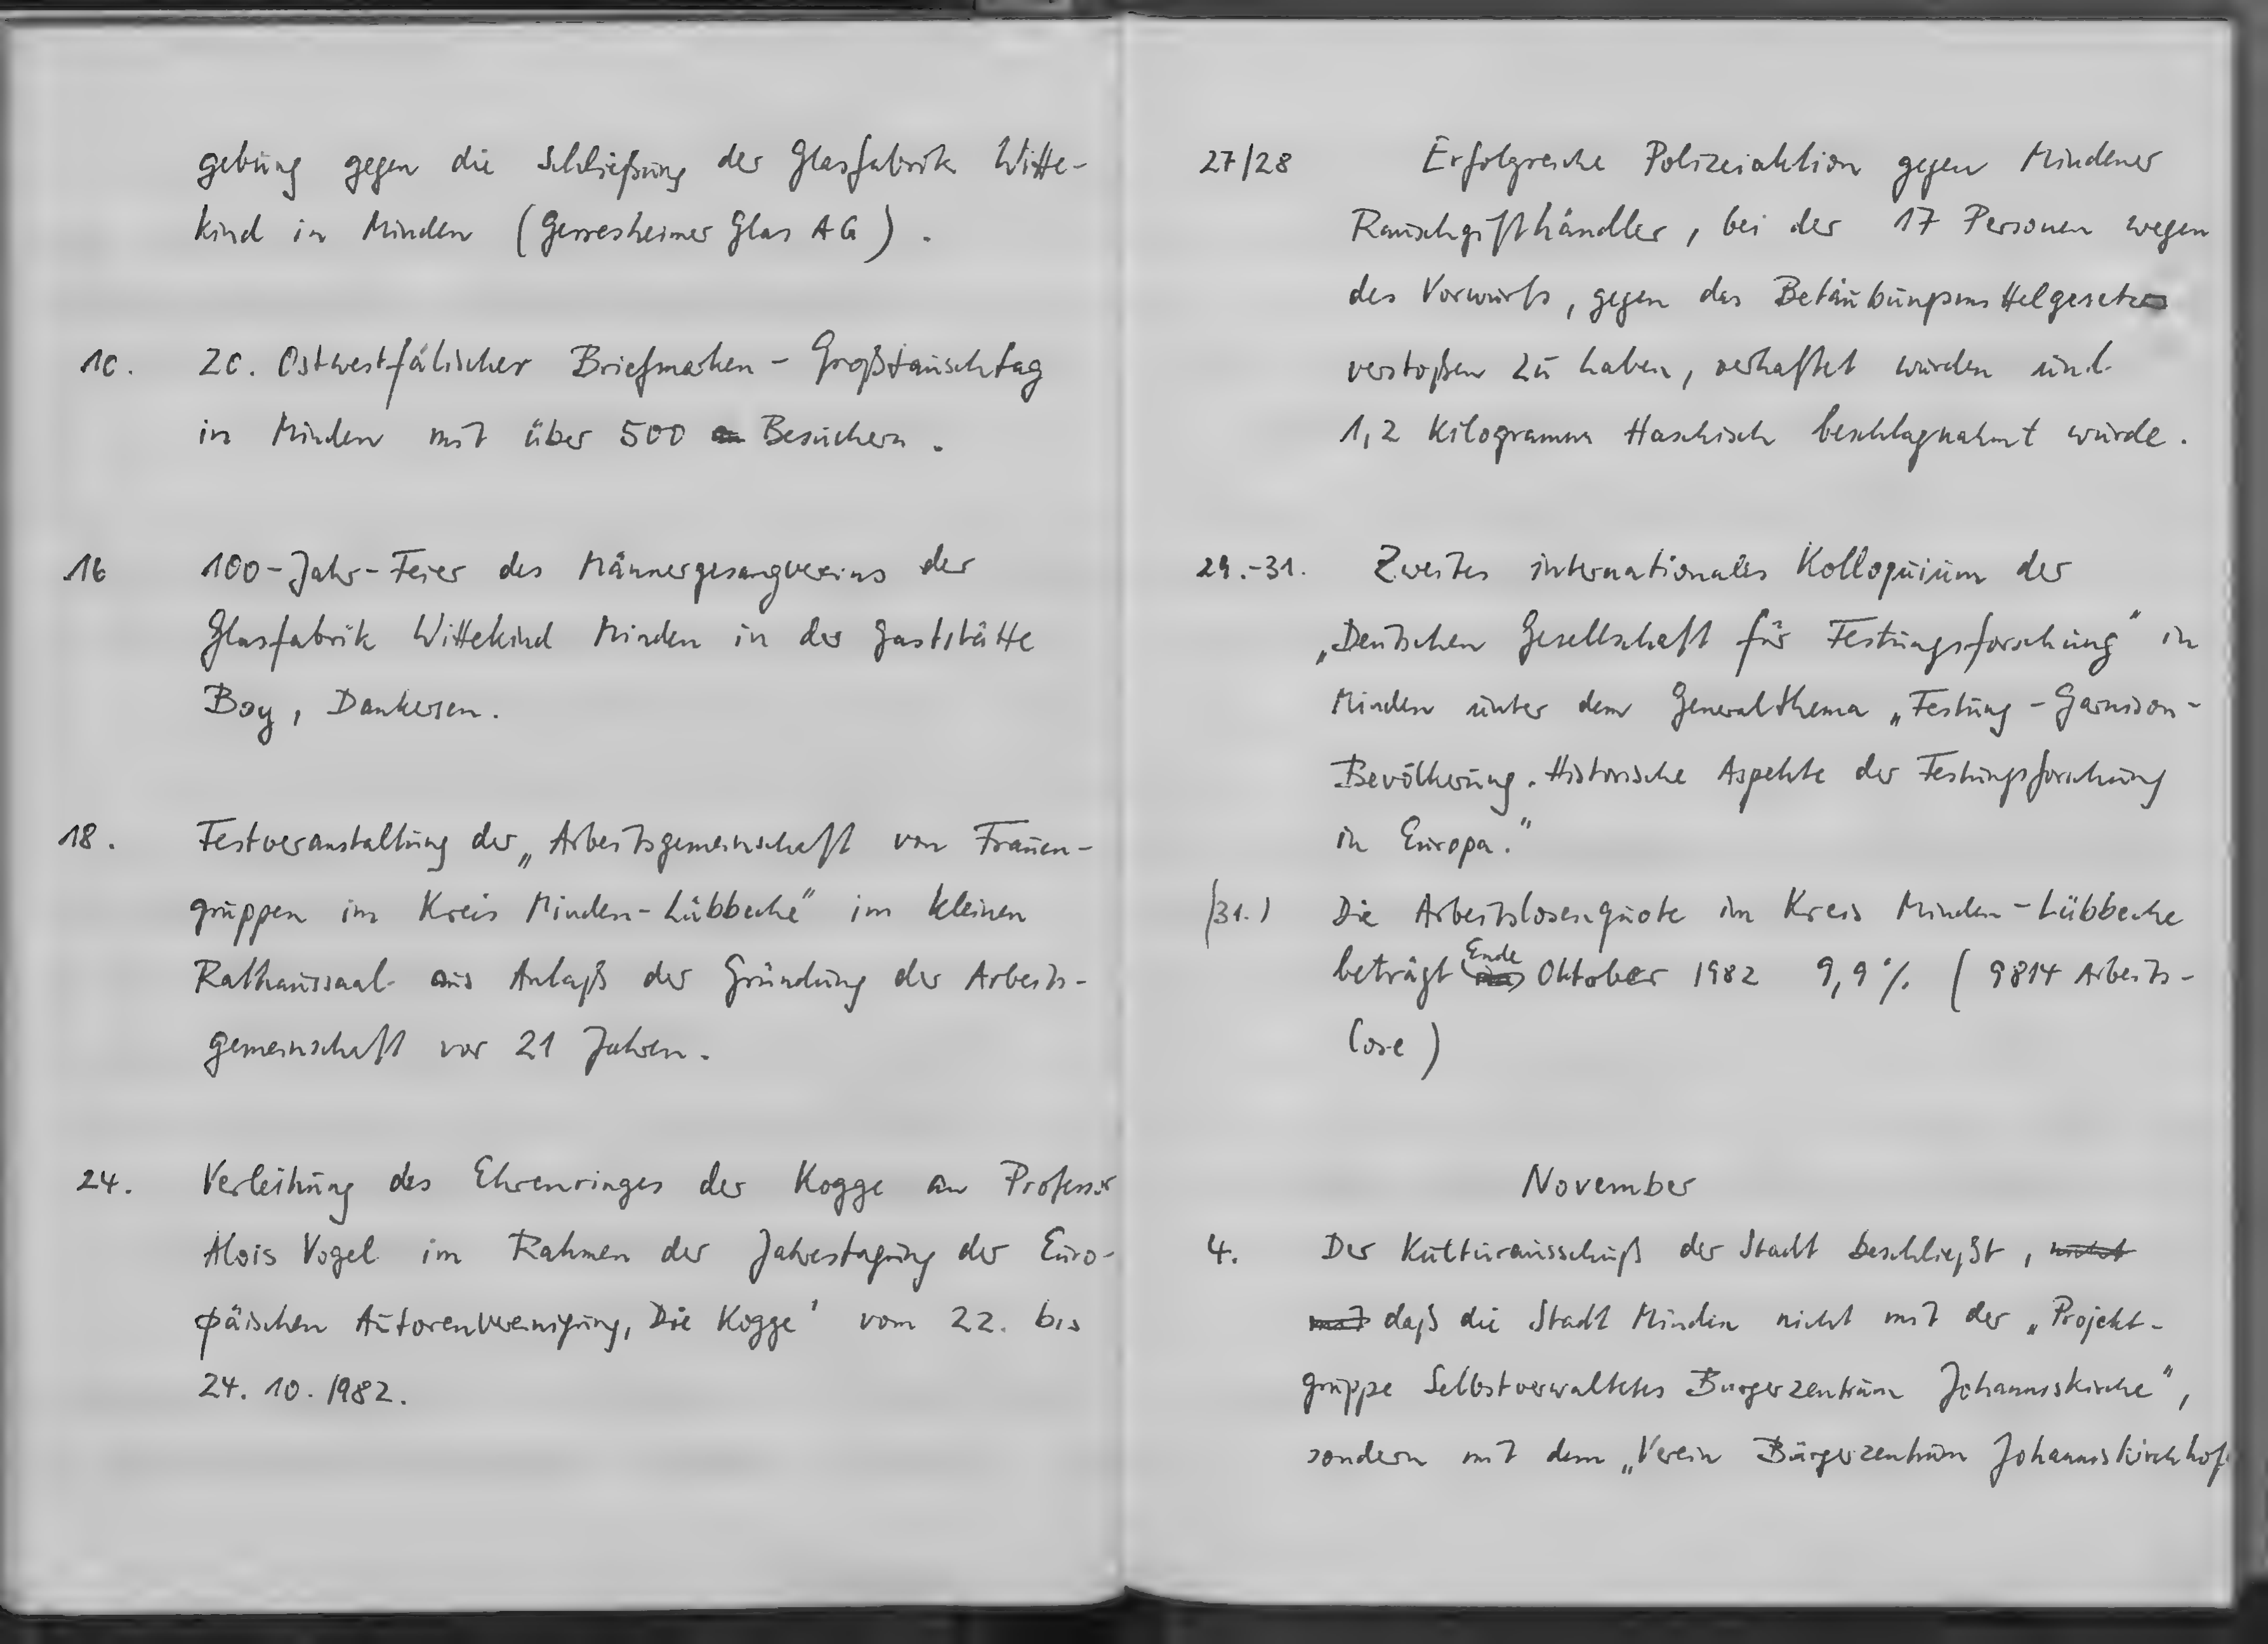 gebung gegen die Schließung der Glasfabrik Witte-
kind in Minden (Gerresheimer Glas AG).
10. 20. Ostwestfälischer Briefmarken-Großtauschtag
in Minden mit über 500 Besuchern.
16 100-Jahr-Feier des Männergesangvereins der
Glasfabrik Wittekind Minden in der Gaststätte
Boy, Dankersen.
18. Festveranstaltung der „Arbeitsgemeinschaft von Frauen-
gruppen im Kreis Minden-Lübbecke" im kleinen
Rathaussaal aus Anlaß der Gründung der Arbeits-
gemeinschaft vor 21 Jahren.
24. Verleihung des Ehrenringes der Kogge an Professor
Alois Vogel im Rahmen der Jahrestagung der Euro-
päischen Autorenvereinigung, Die Kogge' vom 22. bis
24. 10. 1982.
27/28 Erfolgreiche Polizeiaktion gegen Mindener
Rauschgifthändler, bei der 17 Personen wegen
des Vorwurfs, gegen das Betäubungsmittelgesetz
verstoßen zu haben, verhaftet wurden und
1,2 Kilogramm Haschisch beschlagnahmt wurde.
29.-31. Zweites internationales Kolloquium der
„Deutschen Gesellschaft für Festungsforschung" in
Minden unter dem Generalthema „Festung - Garnison -
Bevölkerung. Historische Aspekte der Festungsforschung
in Europa."
(31.) Die Arbeitslosenquote im Kreis Minden-Lübbecke
beträgt Ende Oktober 1982 9,9% (9814 Arbeits-
lose)
November
4. Der Kulturausschuß der Stadt beschließt, nicht
mit daß die Stadt Minden nicht mit der „Projekt-
gruppe Selbstverwaltetes Bürgerzentrum Johanniskirche",
sondern mit dem „Verein Bürgerzentrum Johanniskirchhof